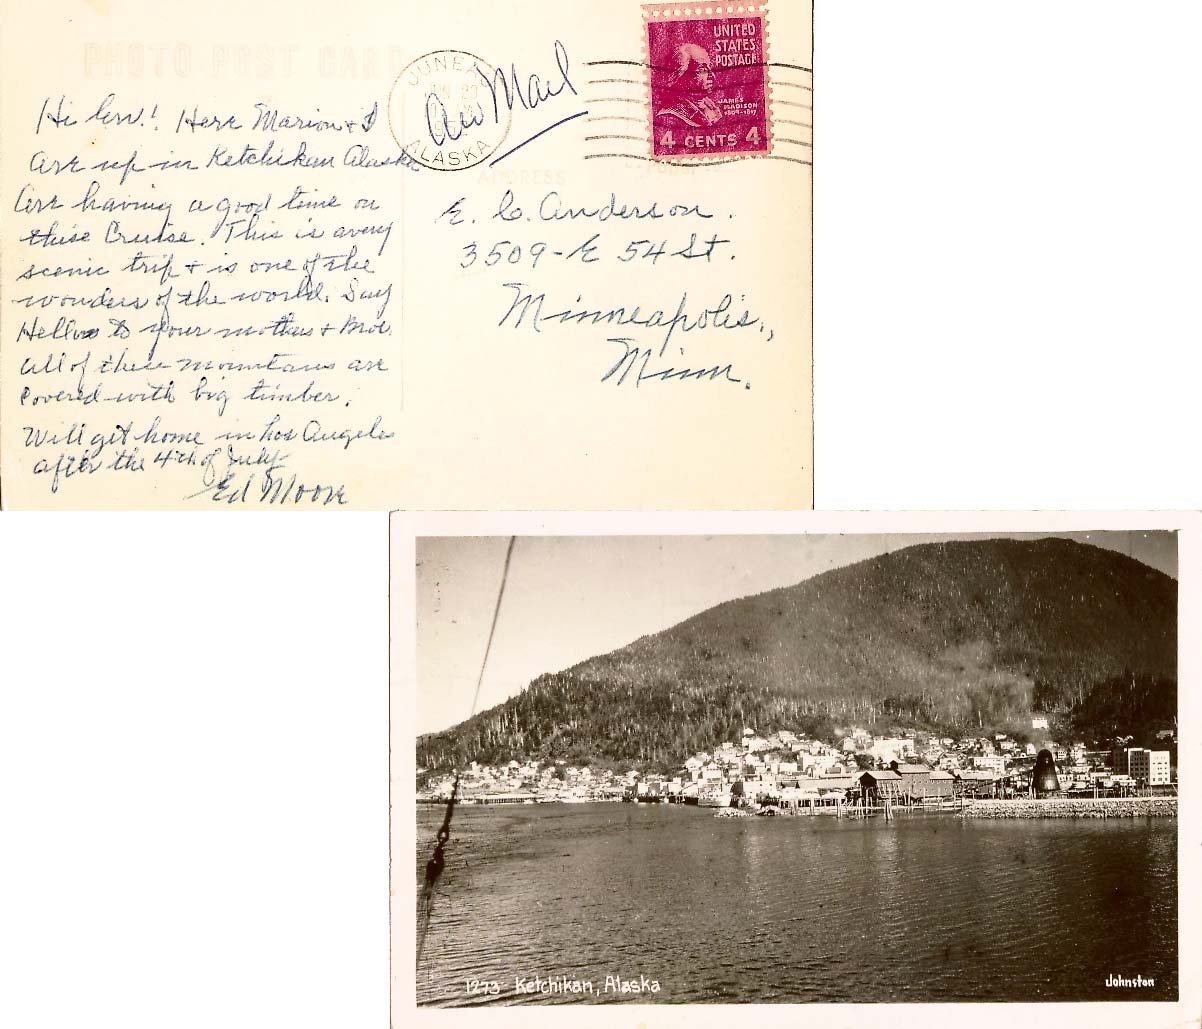 PHOTO POST CARD
JUNEAU
JUN 23
ALASKA
Air Mail
UNITED
STATES
POSTAGE
JAMES
MADISON
1809-1817
4 CENTS 4
ADDRESS
Hi Erv.! Here Marion & I
are up in Ketchikan Alaska
are having a good time on
this Cruise. This is a very
scenic trip & is one of the
wonders of the world. Say
Hello to your mother & Bro.
all of these mountains are
covered with big timber.
Will get home in Los Angeles
after the 4th of July
Ed Moore
E. C. Anderson.
3509-E 54 St.
Minneapolis,
Minn.
1273 Ketchikan, Alaska
Johnston